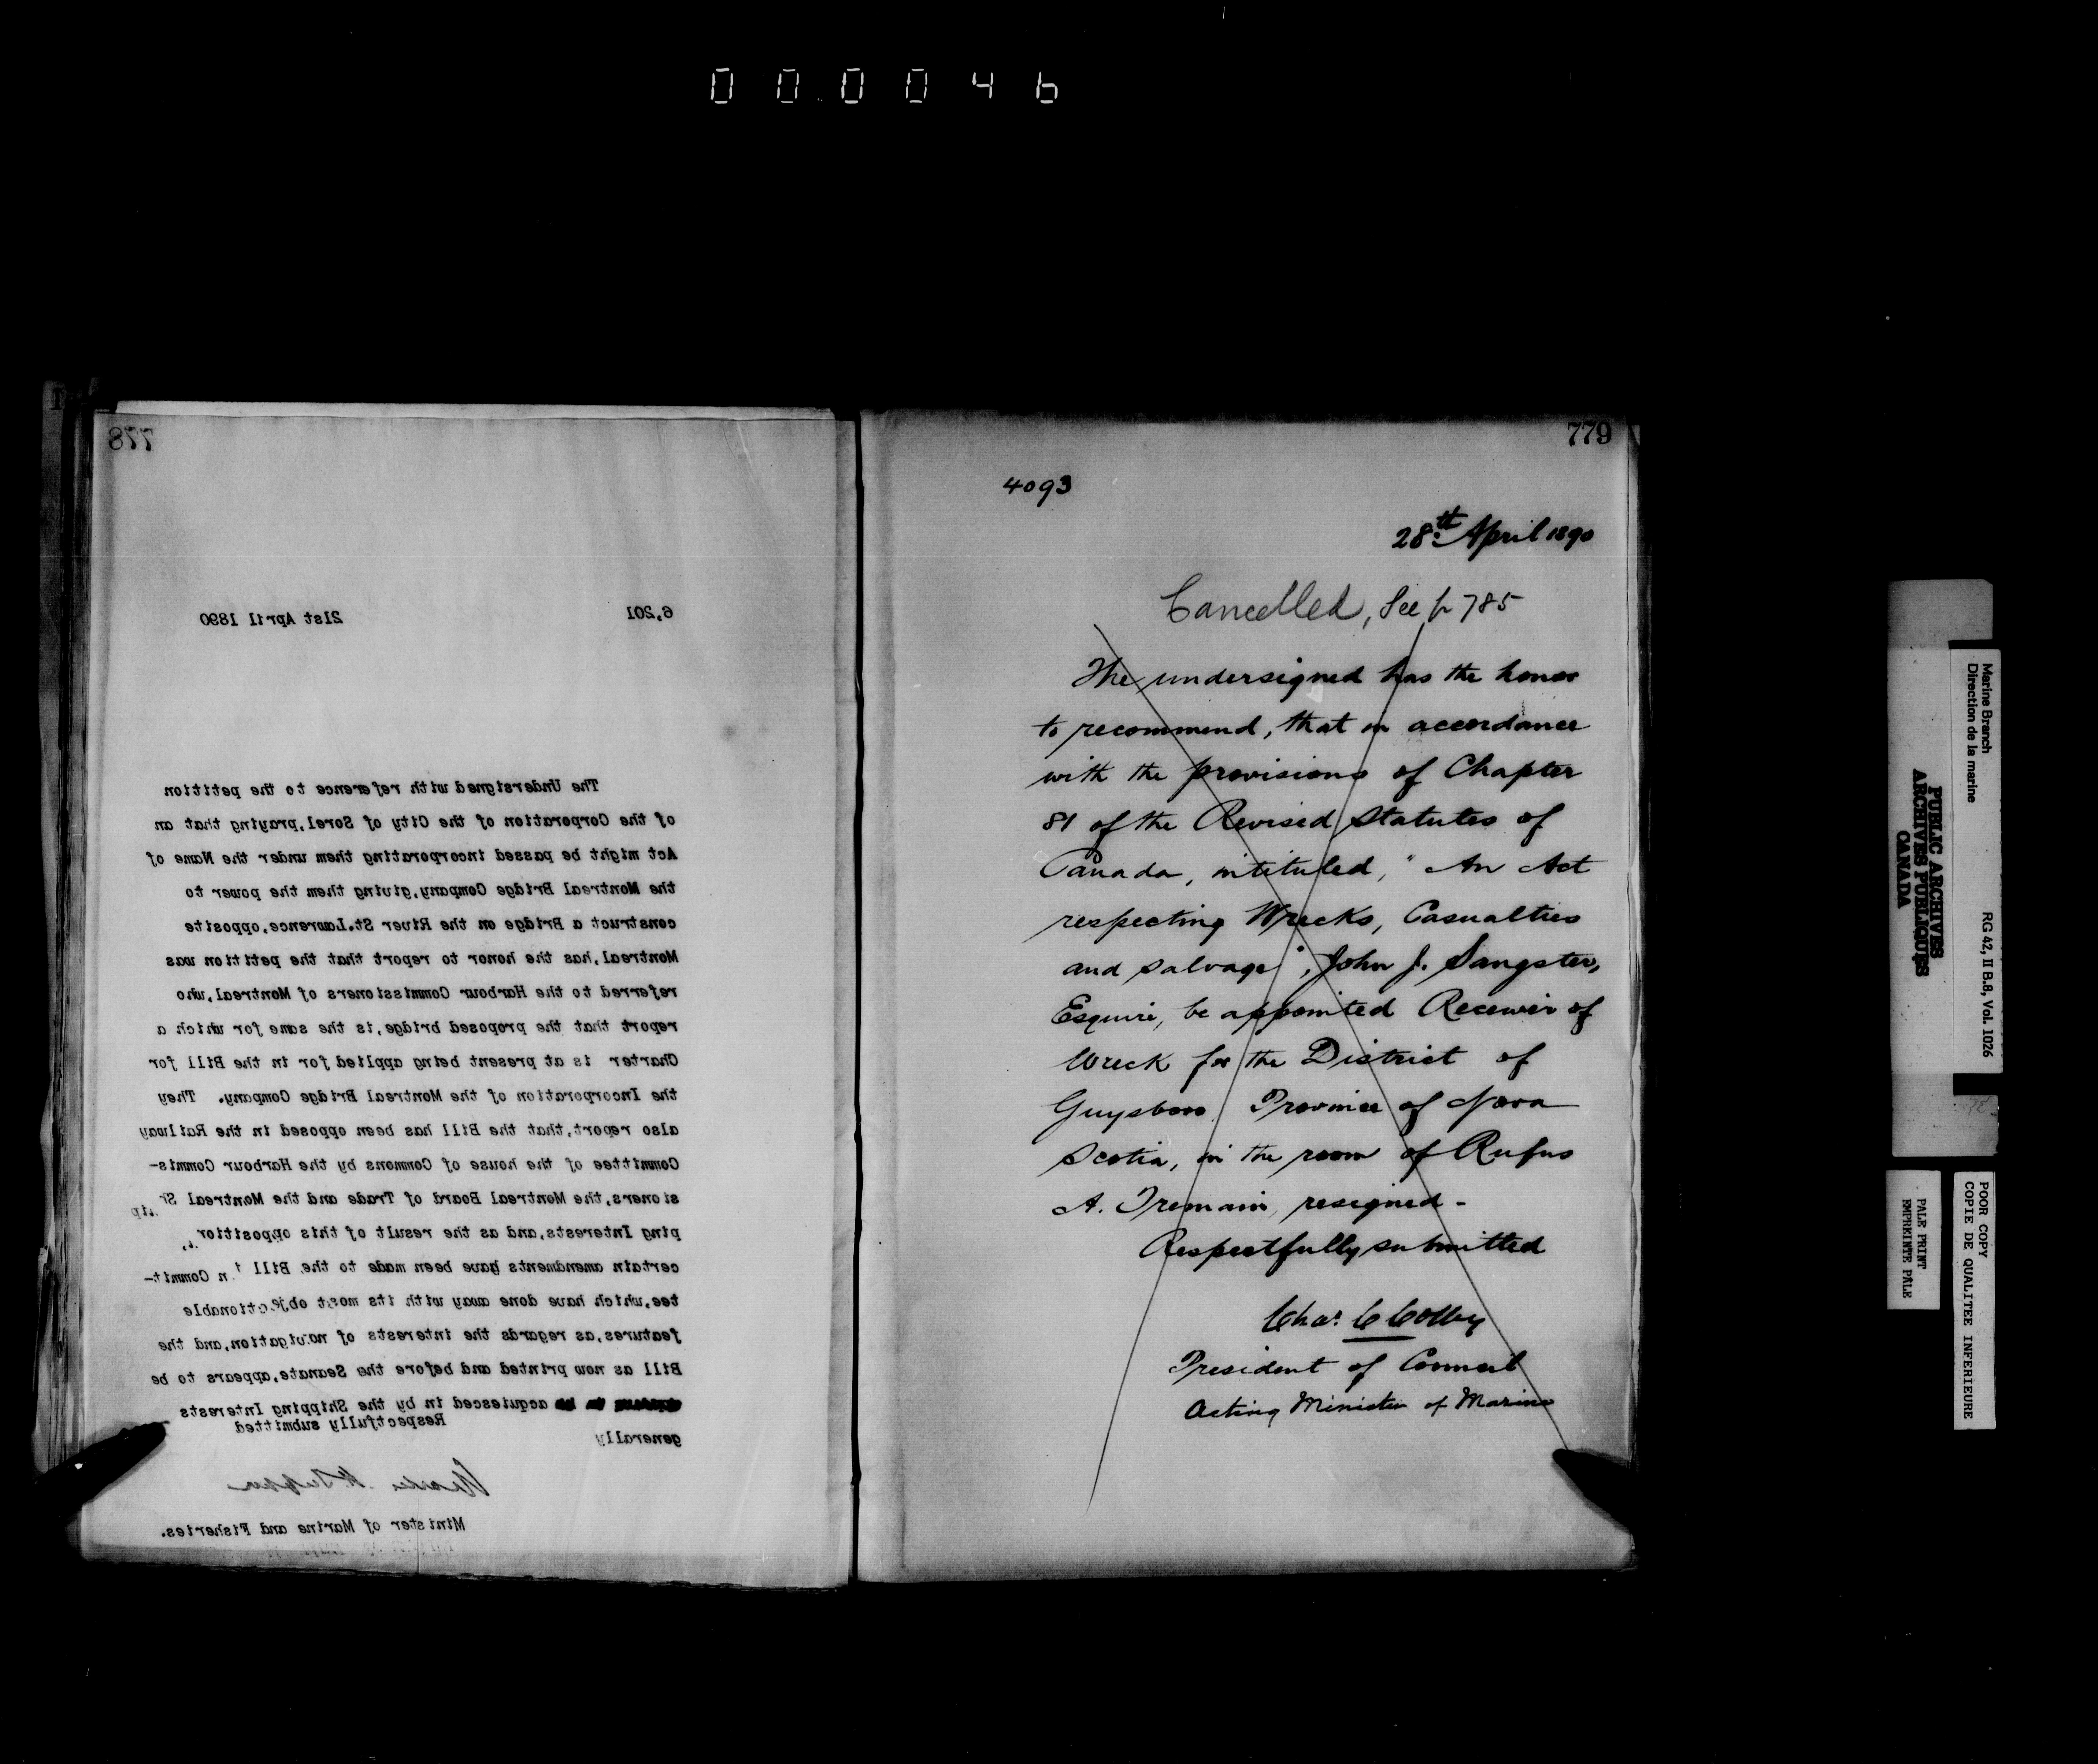 000046
778
6,201 21st April 1890
The Undersigned with reference to the petition
of the Corporation of the City of Sorel,praying that an
Act might be passed incorporating them under the Name of
the Montreal Bridge Company,giving them the power to
construct a Bridge on the River St.Lawrence,opposite
Montreal,has the honor to report that the petition was
referred to the Harbour Commissioners of Montreal,who
report that the proposed bridge,is the same for which a
Charter is at present being applied for in the Bill for
the Incorporation of the Montreal Bridge Company. They
also report,that the Bill has been opposed in the Railway
Committee of the house of Commons by the Harbour Commis-
sioners,the Montreal Board of Trade and the Montreal Ship
ping Interests,and as the result of this opposition,
certain amendments have been made to the Bill in Commit-
tee,which have done away with its most objectionable
features,as regards the interests of navigation,and the
Bill as now printed and before the Seanate,appears to be
acquiesced in by the Shipping Interests
generally
Respectfully submitted
Charles H. Tupper
Minister of Marine and Fisheries.
779
4093
28th April 1890
Cancelled, See p 785
The undersigned has the honor
to recommend, that in accordance
with the provisions of Chapter
81 of the Revised Statutes of
Canada, intituled, " An Act
respecting Wrecks, Casualties
and Salvage", John J. Sangster,
Esquire, be appointed Receiver of
Wreck for the District of
Guysboro Province of Nova
Scotia, in the room of Rufus
A. Tremain, resigned -
Respectfully submitted
Chas. C Colby
President of Council
Acting Minister of Marine
Marine Branch
Direction de la marine
RG 42, II B.8, Vol. 1026
PUBLIC ARCHIVES
ARCHIVES PUBLIQUES
CANADA
PALE PRINT
EMPREINTE PALE
POOR COPY
COPIE DE QUALITEE INFERIEURE